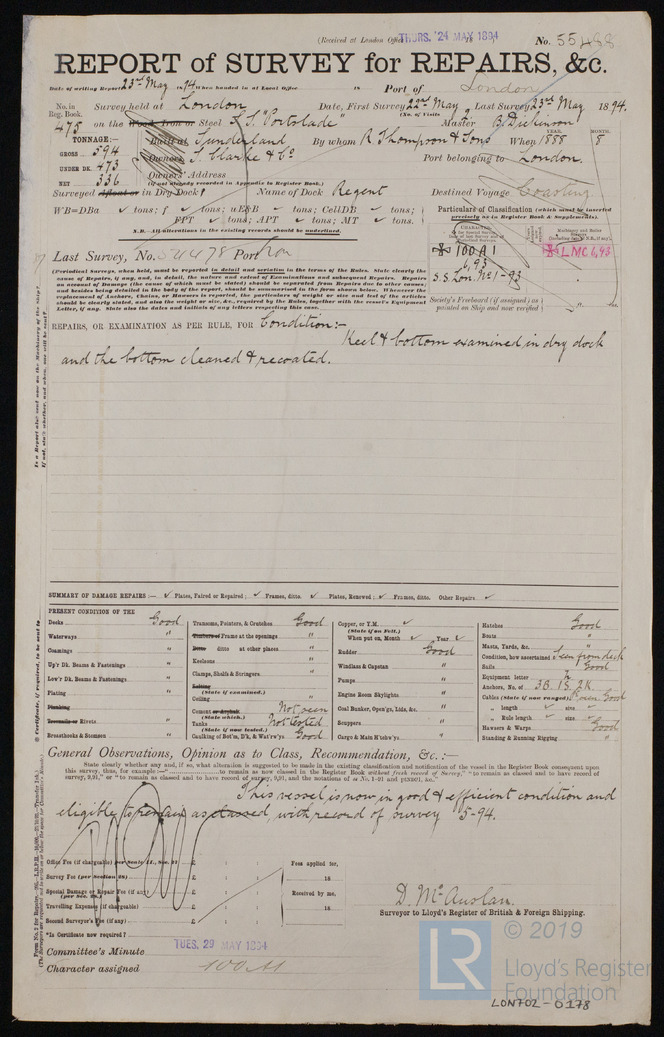 (Received at London Office THURS. 24 MAY 1894
No. 55488
REPORT of SURVEY for REPAIRS, &c.
Date of writing Report 23rd May 1894 When handed in at Local Office 18 Port of London
No. in Reg. Book. 475
Survey held at London Date, First Survey 22nd May Last Survey 23rd May 1894.
(No. of Visits
on the Wood, Iron or Steel S.S. "Portslade" Master B. Dickinson
TONNAGE:—
GROSS 594
UNDER DK. 473
NET 336
Built at Sunderland By whom R. Thompson & Sons When 1888 8
YEAR. MONTH.
Owners S. Clarke & Co Port belonging to London.
Owners' Address
(if not already recorded in Appendix to Register Book.)
Surveyed Afloat or in Dry Dock? Name of Dock Regent Destined Voyage Coasting
WB=DBa ✓ tons; f ✓ tons; uE&B ✓ tons; CellDB ✓ tons;
FPT ✓ tons; APT ✓ tons; MT ✓ tons.
N.B.—All alterations in the existing records should be underlined.
Particulars of Classification (which must be inserted precisely as in Register Book & Supplements).
100 A 1
6,93
S.S. Lon. No1-93
LMC 6,93
Society's Freeboard (if assigned) as painted on Ship and now verified
Last Survey, No. 54478 Port Lon
(Periodical Surveys, when held, must be reported in detail and seriatim in the terms of the Rules. State clearly the cause of Repairs, if any, and, in detail, the nature and extent of Examinations and subsequent Repairs. Repairs on account of Damage (the cause of which must be stated) should be separated from Repairs due to other causes; and besides being detailed in the body of the report, should be summarised in the form shewn below. Whenever the replacement of Anchors, Chains, or Hawsers is reported, the particulars of weight or size and test of the articles should be clearly stated, and also the weight or size, &c., required by the Rules, together with the vessel's Equipment Letter, if any. State also the dates and initials of any letters respecting this case.
REPAIRS, OR EXAMINATION AS PER RULE, FOR Condition:—
Keel & bottom examined in dry dock
and the bottom cleaned & recoated.
SUMMARY OF DAMAGE REPAIRS:— ✓ Plates, Faired or Repaired; ✓ Frames, ditto. ✓ Plates, Renewed; ✓ Frames, ditto. Other Repairs ✓
PRESENT CONDITION OF THE
Decks Good
Waterways "
Coamings "
Up'r Dk. Beams & Fastenings "
Low'r Dk. Beams & Fastenings "
Plating "
Planking
Treenails or Rivets "
Breasthooks & Stemson "
Transoms, Pointers, & Crutches Good
Timbers or Frame at the openings "
Ditto ditto at other places "
Keelsons "
Clamps, Shelfs & Stringers "
Salting
(State if examined.)
Ceiling "
Cement or Asphalt Not seen
(State which.)
Tanks Not tested
(State if now tested.)
Caulking of Bot'm, D'k, & Wat'rw'ys Good
Copper, or Y.M. ✓
(State if on Felt.)
When put on, Month ✓ Year ✓
Rudder Good
Windlass & Capstan "
Pumps "
Engine Room Skylights "
Coal Bunker, Open'gs, Lids, &c. "
Scuppers "
Cargo & Main H'tchw'ys "
Hatches Good
Boats "
Masts, Yards, &c. "
Condition, how ascertained Seen from deck
Sails Good
Equipment letter
Anchors, No. of 3B. 1S. 2K.
Cables (State if now ranged)
„ length ✓ size ✓
„ Rule length ✓ size ✓
Hawsers & Warps Good
Standing & Running Rigging "
General Observations, Opinion as to Class, Recommendation, &c.:—
State clearly whether any, and if so, what alteration is suggested to be made in the existing classification and notations of the vessel in the Register Book consequent upon
this survey, thus, for example:—"to remain as now classed in the Register Book without fresh record of Survey," "to remain as classed and to have record of
survey, 9,91," or "to remain as classed and to have record of survey, 9,91, and the notations of ss No. 1-91 and PtNS91, &c."
This vessel is now in good & efficient condition and
eligible to remain as classed, with record of survey 5-94.
Office Fee (if chargeable) per Scale II., Sec. 27 £ : :
Survey Fee (per Section 28) £ : :
Special Damage or Repair Fee (if any) £ : :
(per Sec. 28.)
Travelling Expenses (if chargeable) £ : :
Second Surveyor's Fee (if any) £ : :
Fees applied for,
18
Received by me,
18
D. McAuslan.
Surveyor to Lloyd's Register of British & Foreign Shipping.
*Is Certificate now required?
Committee's Minute TUES. 29 MAY 1894
Character assigned 100A1
© 2019
LR
Lloyd's Register
Foundation
LON702-0178